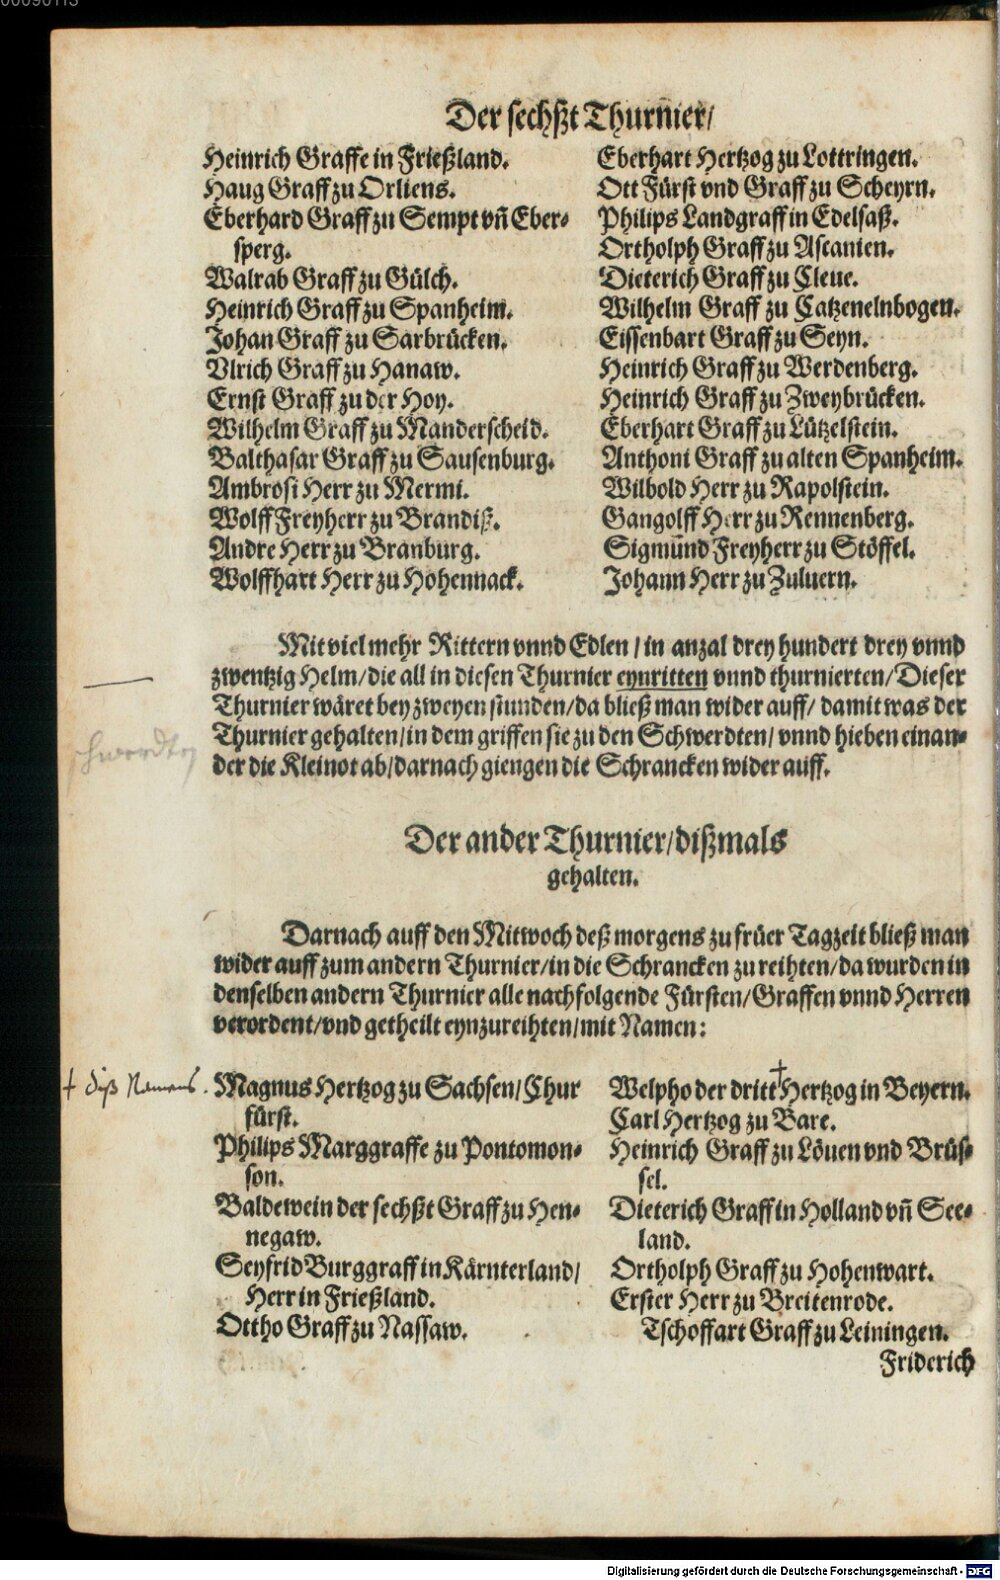 Der sechßt Thurnier/
Heinrich Graffe in Frießland.
Haug Graff zu Orliens.
Eberhard Graff zu Sempt vñ Eber-
sperg.
Walrab Graff zu Gülch.
Heinrich Graff zu Spanheim.
Johan Graff zu Sarbrücken.
Vlrich Graff zu Hanaw.
Ernst Graff zu der Hoy.
Wilhelm Graff zu Manderscheid.
Balthasar Graff zu Sausenburg.
Ambrosi Herr zu Mermi.
Wolff Freyherr zu Brandiß.
Andre Herr zu Branburg.
Wolffhart Herr zu Hohennack.
Eberhart Hertzog zu Lottringen.
Ott Fürst vnd Graff zu Scheyrn.
Philips Landgraff in Edelsaß.
Ortholph Graff zu Ascanien.
Dieterich Graff zu Cleue.
Wilhelm Graff zu Catzenelnbogen.
Eissenbart Graff zu Seyn.
Heinrich Graff zu Werdenberg.
Heinrich Graff zu Zweybrücken.
Eberhart Graff zu Lützelstein.
Anthoni Graff zu alten Spanheim.
Wilbold Herr zu Rapolstein.
Gangolff Herr zu Rennenberg.
Sigmūnd Freyherr zu Stöffel.
Johann Herr zu Zuluern.
Mit viel mehr Rittern vnnd Edlen / in anzal drey hundert drey vnnd
zwentzig Helm/die all in diesen Thurnier eynritten vnnd thurnierten/Dieser
Thurnier wäret bey zweyen stunden/da bließ man wider auff/ damit was der
Thurnier gehalten/in dem griffen sie zu den Schwerdten/ vnnd hieben einan-
der die Kleinot ab/darnach giengen die Schrancken wider auff.
Der ander Thurnier/dißmals
gehalten.
Darnach auff den Mitwoch deß morgens zu früer Tagzeit bließ man
wider auff zum andern Thurnier/in die Schrancken zu reihten/da wurden in
denselben andern Thurnier alle nachfolgende Fürsten/Graffen vnnd Herren
verordent/vnd getheilt eynzureihten/mit Namen:
† diß Namens.
Magnus Hertzog zu Sachsen/Chur
fürst.
Philips Marggraffe zu Pontomon-
son.
Baldewein der sechßt Graff zu Hen-
negaw.
Seyfrid Burggraff in Kärnterland/
Herr in Frießland.
Ottho Graff zu Nassaw.
Welpho der dritt † Hertzog in Beyern.
Carl Hertzog zu Bare.
Heinrich Graff zu Löuen vnd Brüs-
sel.
Dieterich Graff in Holland vñ See-
land.
Ortholph Graff zu Hohenwart.
Erster Herr zu Breitenrode.
Tschoffart Graff zu Leiningen.
Friderich
Digitalisierung gefördert durch die Deutsche Forschungsgemeinschaft - DFG